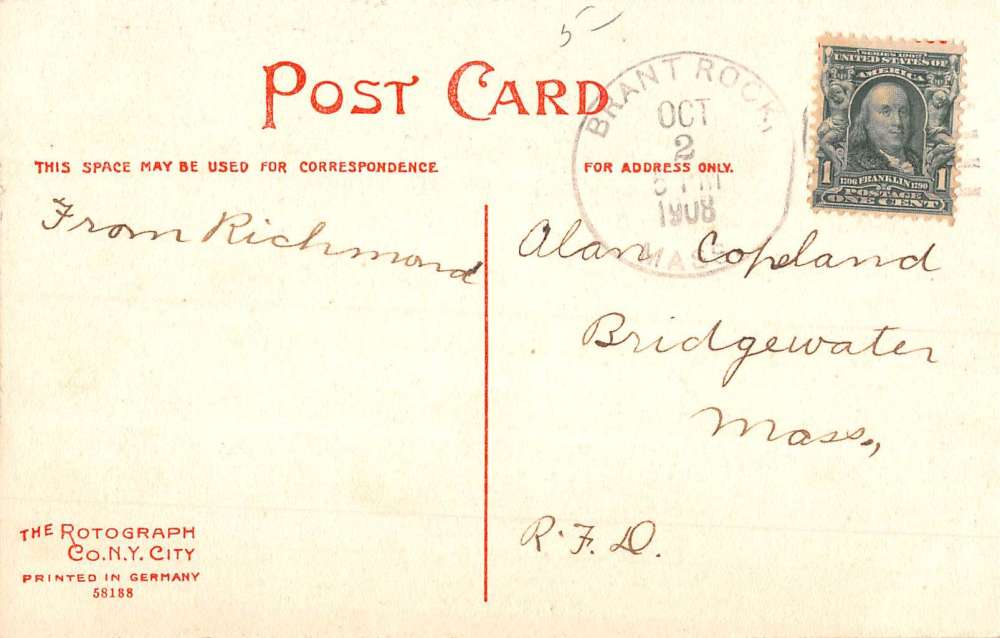 5-
POST CARD
THIS SPACE MAY BE USED FOR CORRESPONDENCE
FOR ADDRESS ONLY.
BRANT ROCK,
OCT
2
1908
MASS
SERIES 1902
UNITED STATES OF
AMERICA
1706 FRANKLIN 1790
1 POSTAGE 1
ONE CENT
From Richmond
Alan Copeland
Bridgewater
Mass.,
R.F.D.
THE ROTOGRAPH
CO. N.Y. CITY
PRINTED IN GERMANY
58188